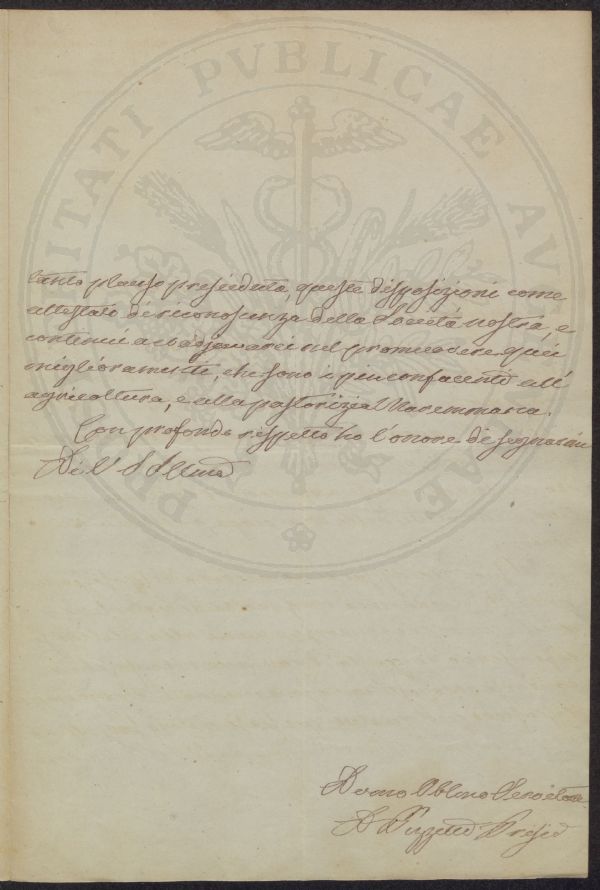 PROSPERITATI PVBLICAE AVGENDAE
tanto plauso presieduta, queste disposizioni come
attestato di riconoscenza della Società nostra, e
continui a coadjuvarci nel promuovere quei
miglioramenti, che sono i piu confacenti all'
agricoltura, e alla pastorizia Maremmana.
Con profondo rispetto ho l'onore di segnarmi
Di V. S. Illma
Devmo Obbmo Servitore